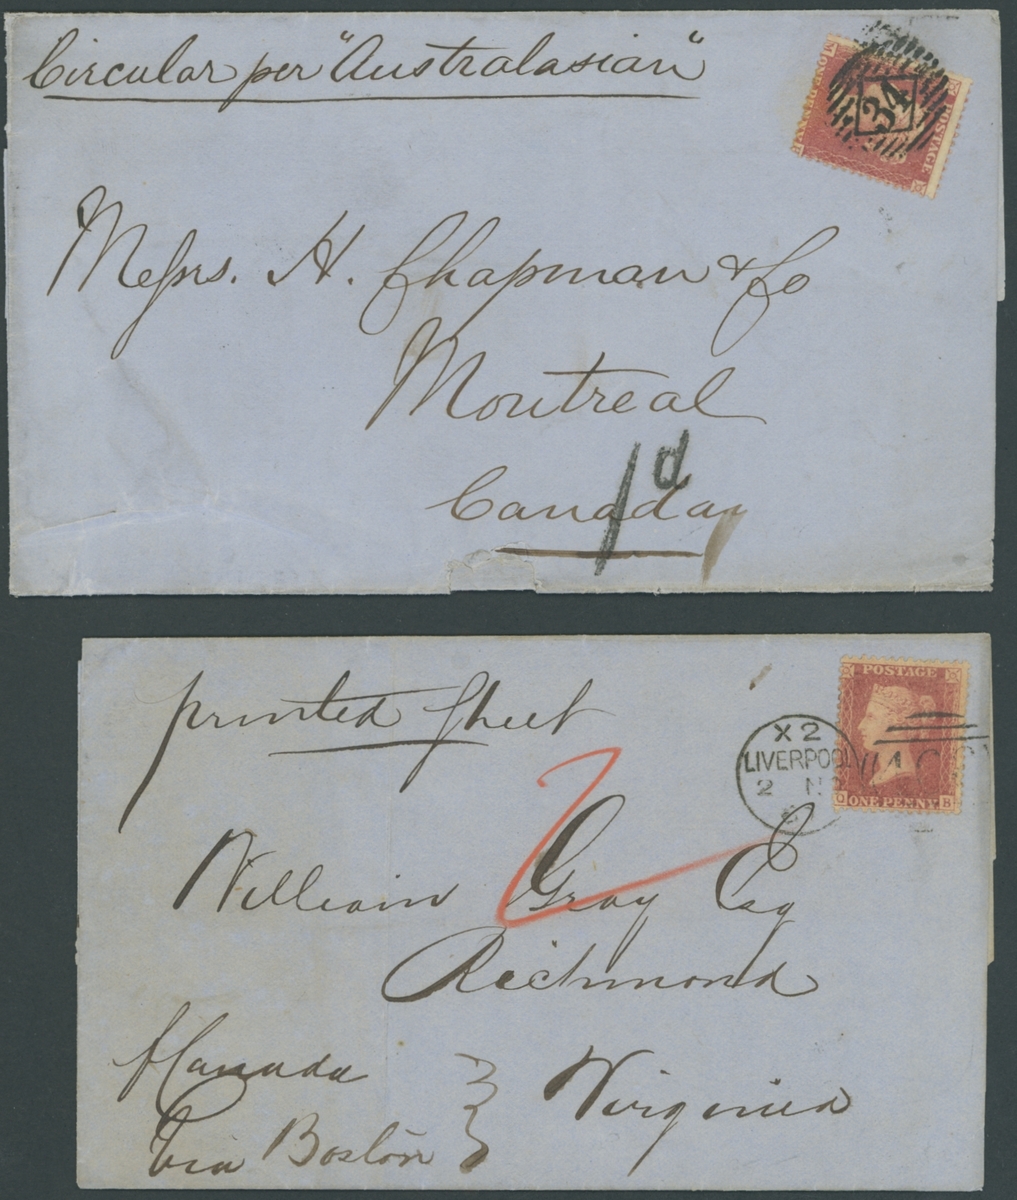 Circular per "Australasian"
POSTAGE
34
Messrs. H. Chapman & Co
Montreal
1d
Canada
printed sheet
POSTAGE
X 2
LIVERPOOL
2 N
ONE PENNY
Q B
2
William Gray Esq
Richmond
Virginia
p Canada
Via Boston